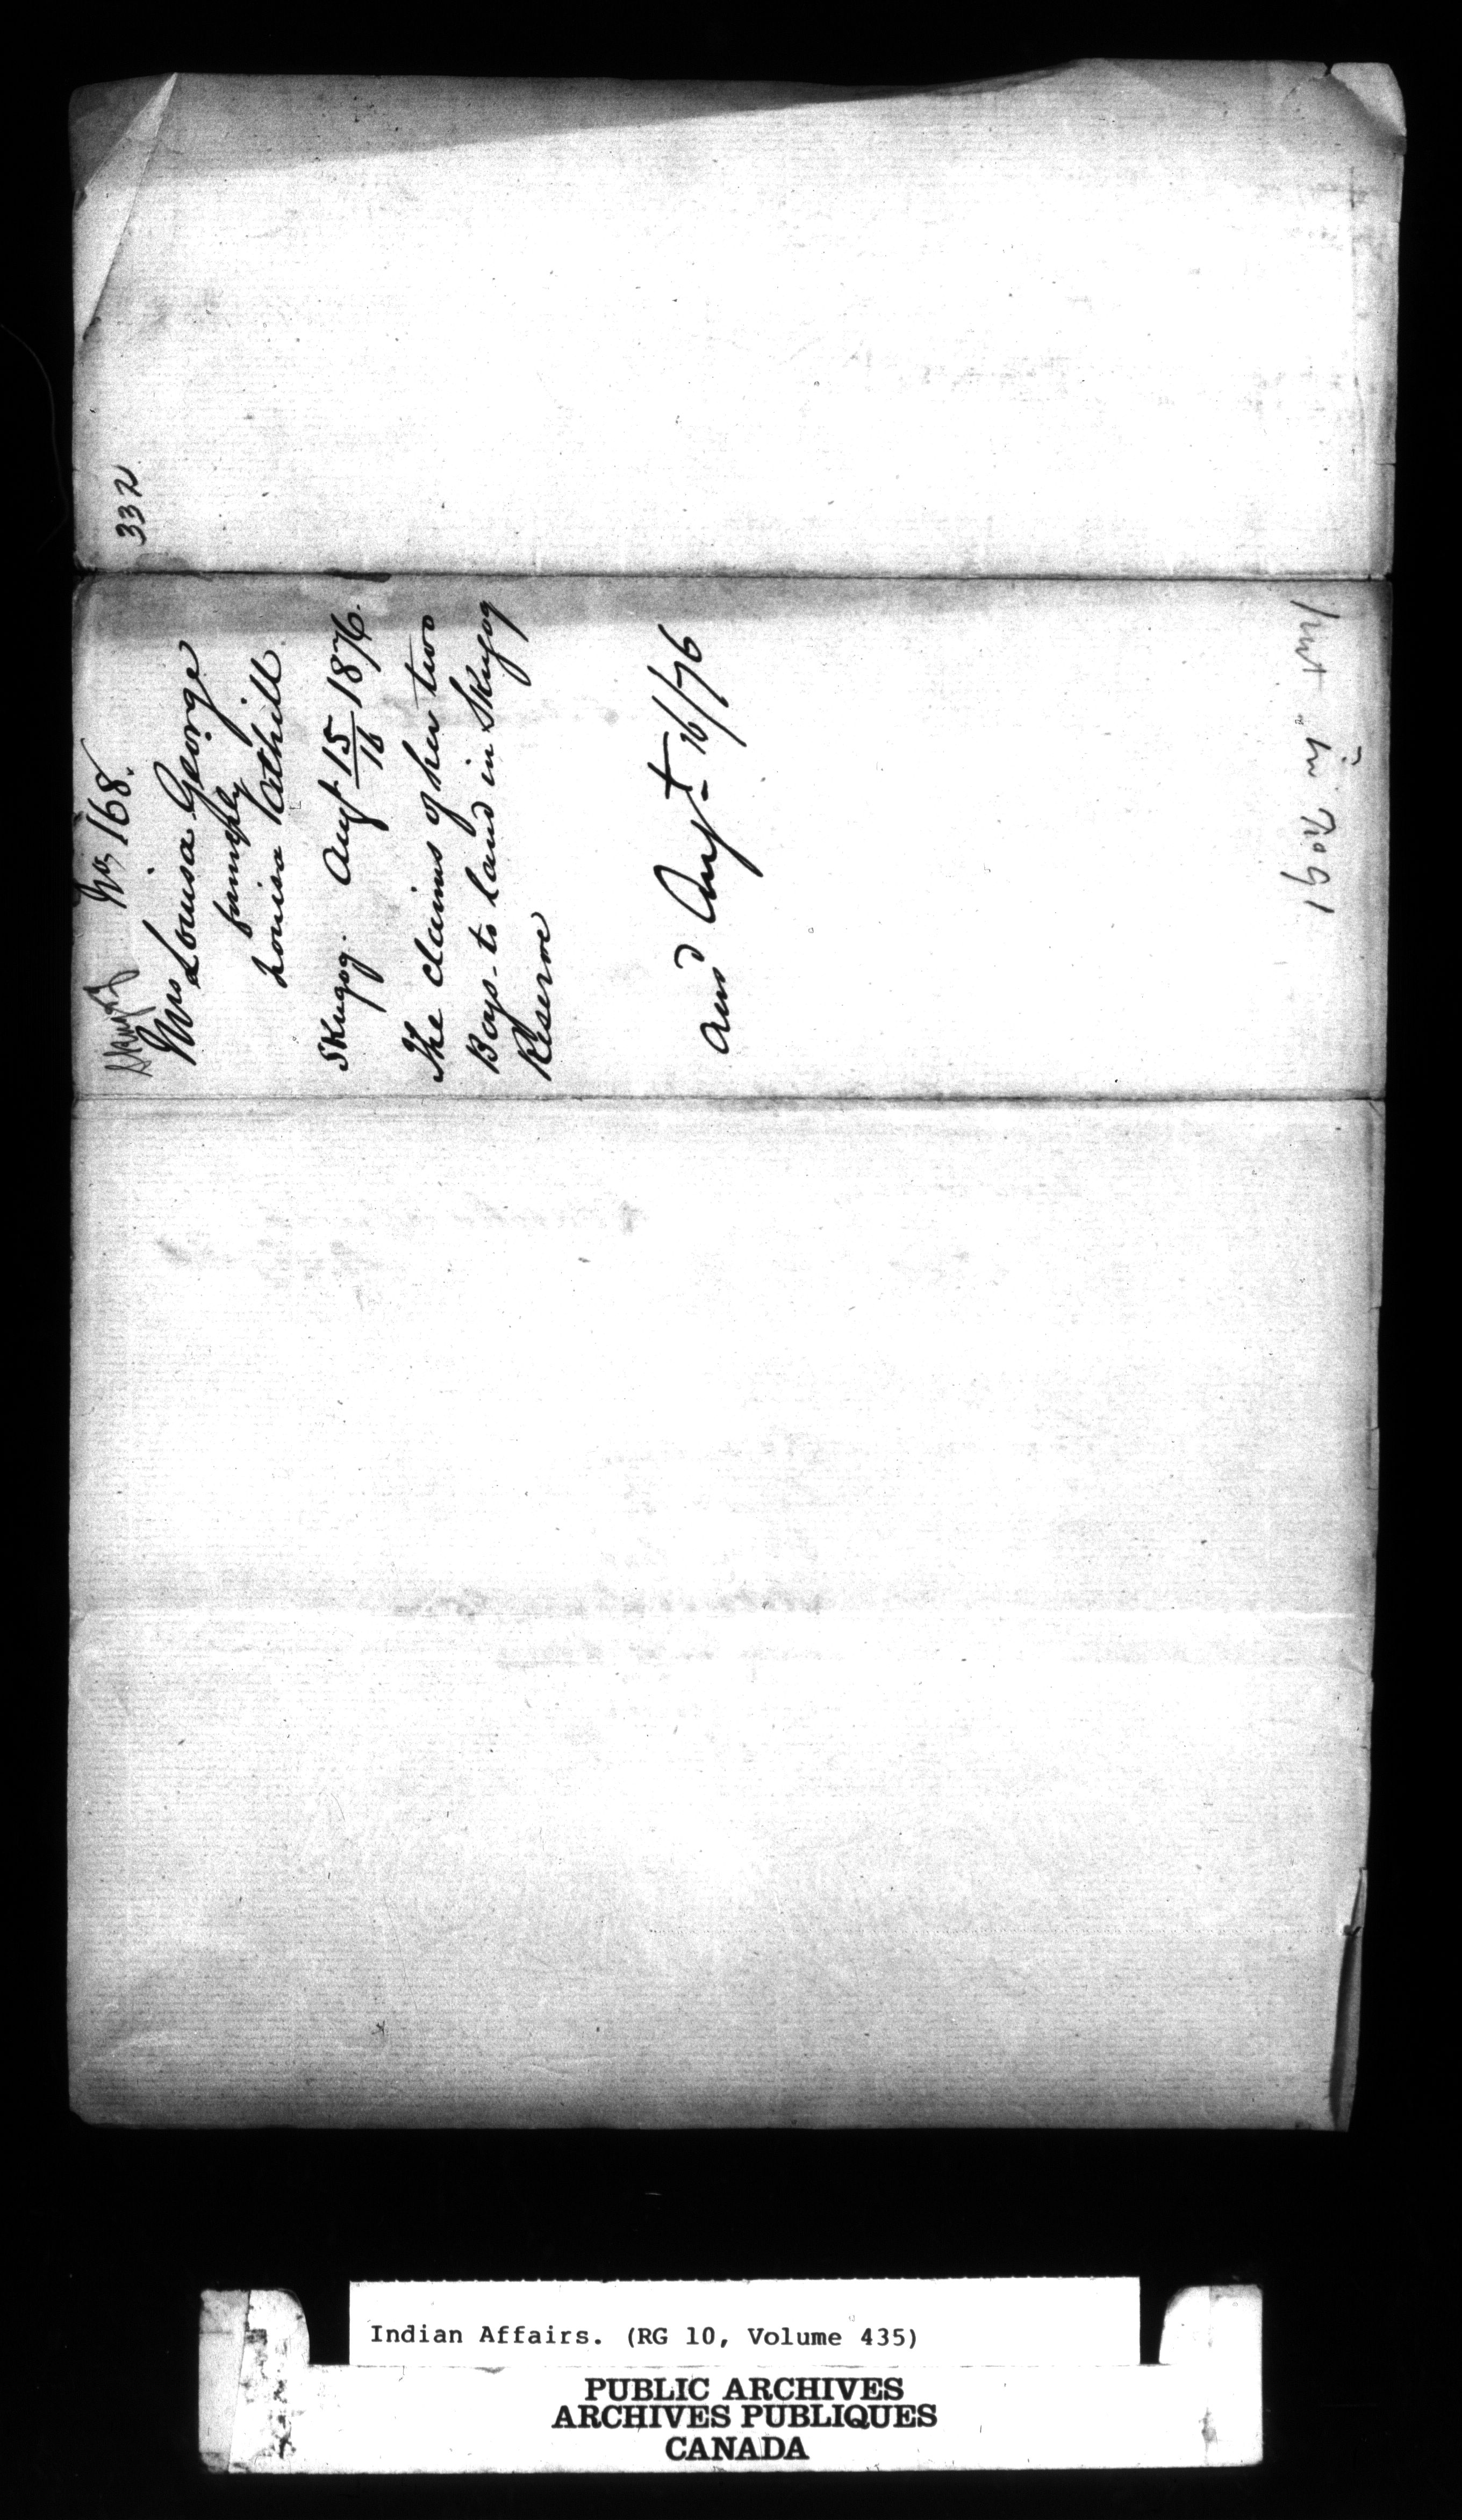 332
Skugog
No 168.
Mrs Louisa George
formerly
Louisa Cathill
Skugog. Augt 15/16 1876.
The claims of her two
Boys to land in Skugog
Reserve
Ansd Augt 16/76
in
Indian Affairs. (RG 10, Volume 435)
PUBLIC ARCHIVES
ARCHIVES PUBLIQUES
CANADA